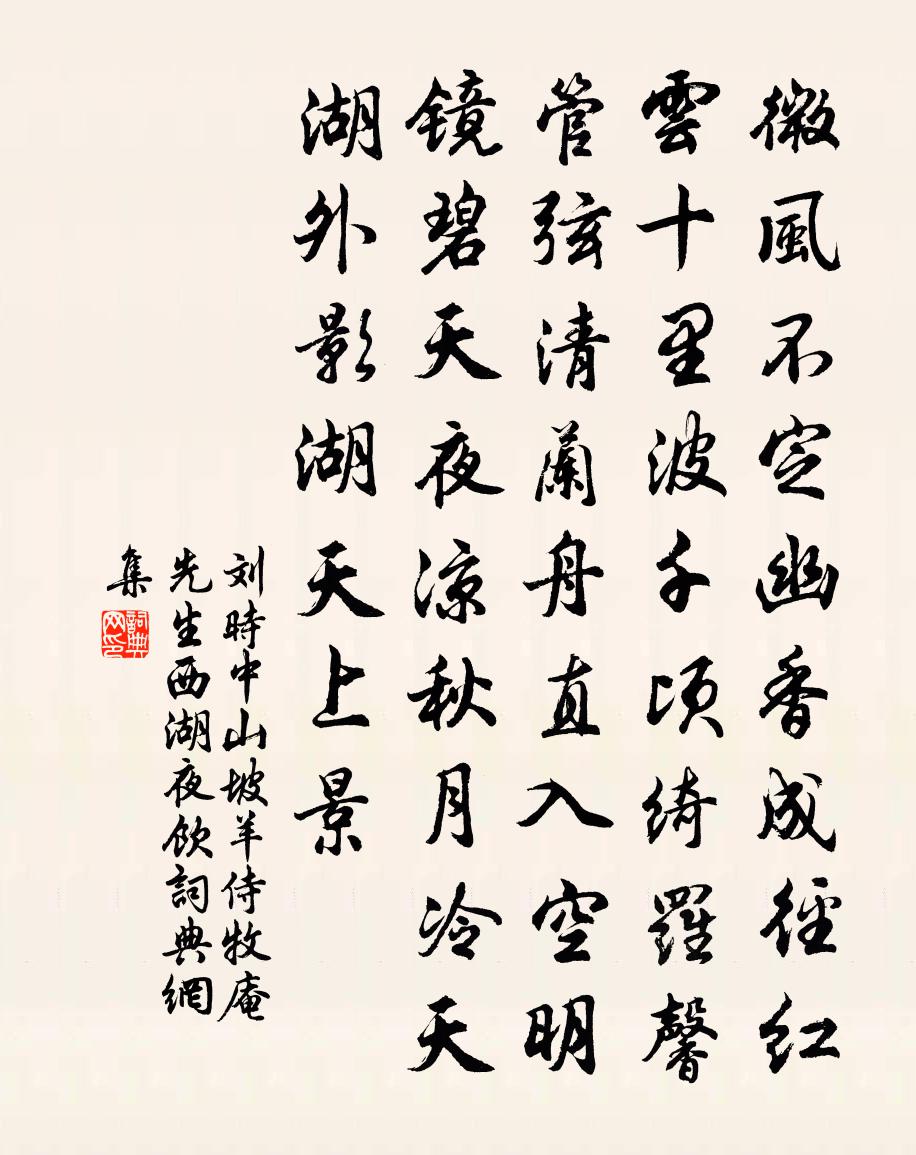 微風不定幽香成徑紅
雲十里波千頃綺羅馨
管弦清蘭舟直入空明
鏡碧天夜涼秋月冷天
湖外影湖天上景
刘時中山坡羊侍牧庵
先生西湖夜飲詞典網
集
詞典
网印